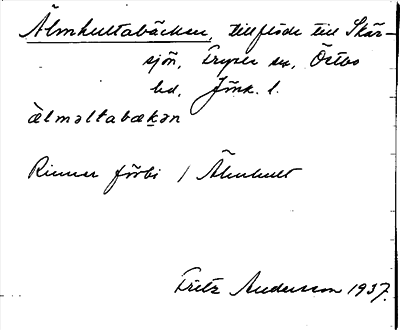 Älmhultabäcken, tillflöde till Skär-
sjön, Fryele sn, Östbo
hd, Jönk. l.
älmaltabækan
Rinner förbi / Älmhult
Fritz Andersson 1937.